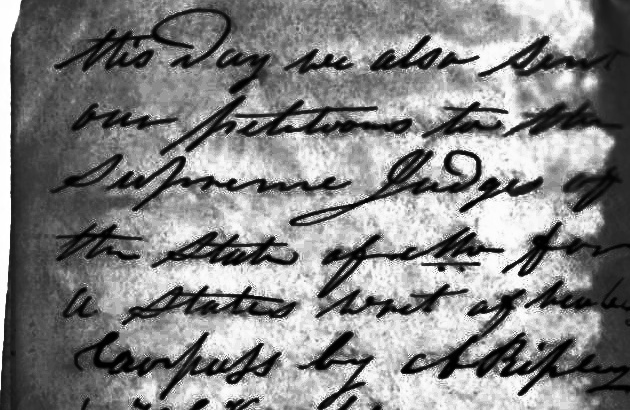 this Day we also Sent
our petitions to the
Supreme Judges of
the State of Mo for
a States writ of
Corpuss by Ripley